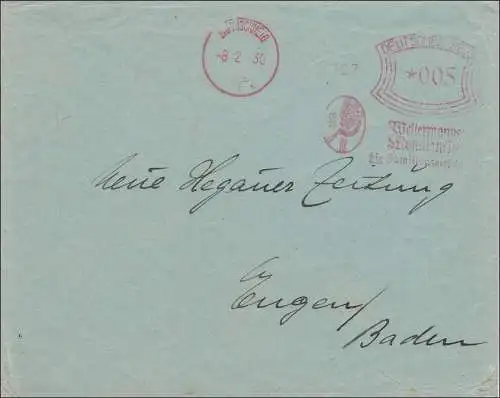 -8.2.30
DEUTSCHES REICH
*005
Westermanns
Monatshefte
Neue Hegauer Zeitung
Engen/
Baden